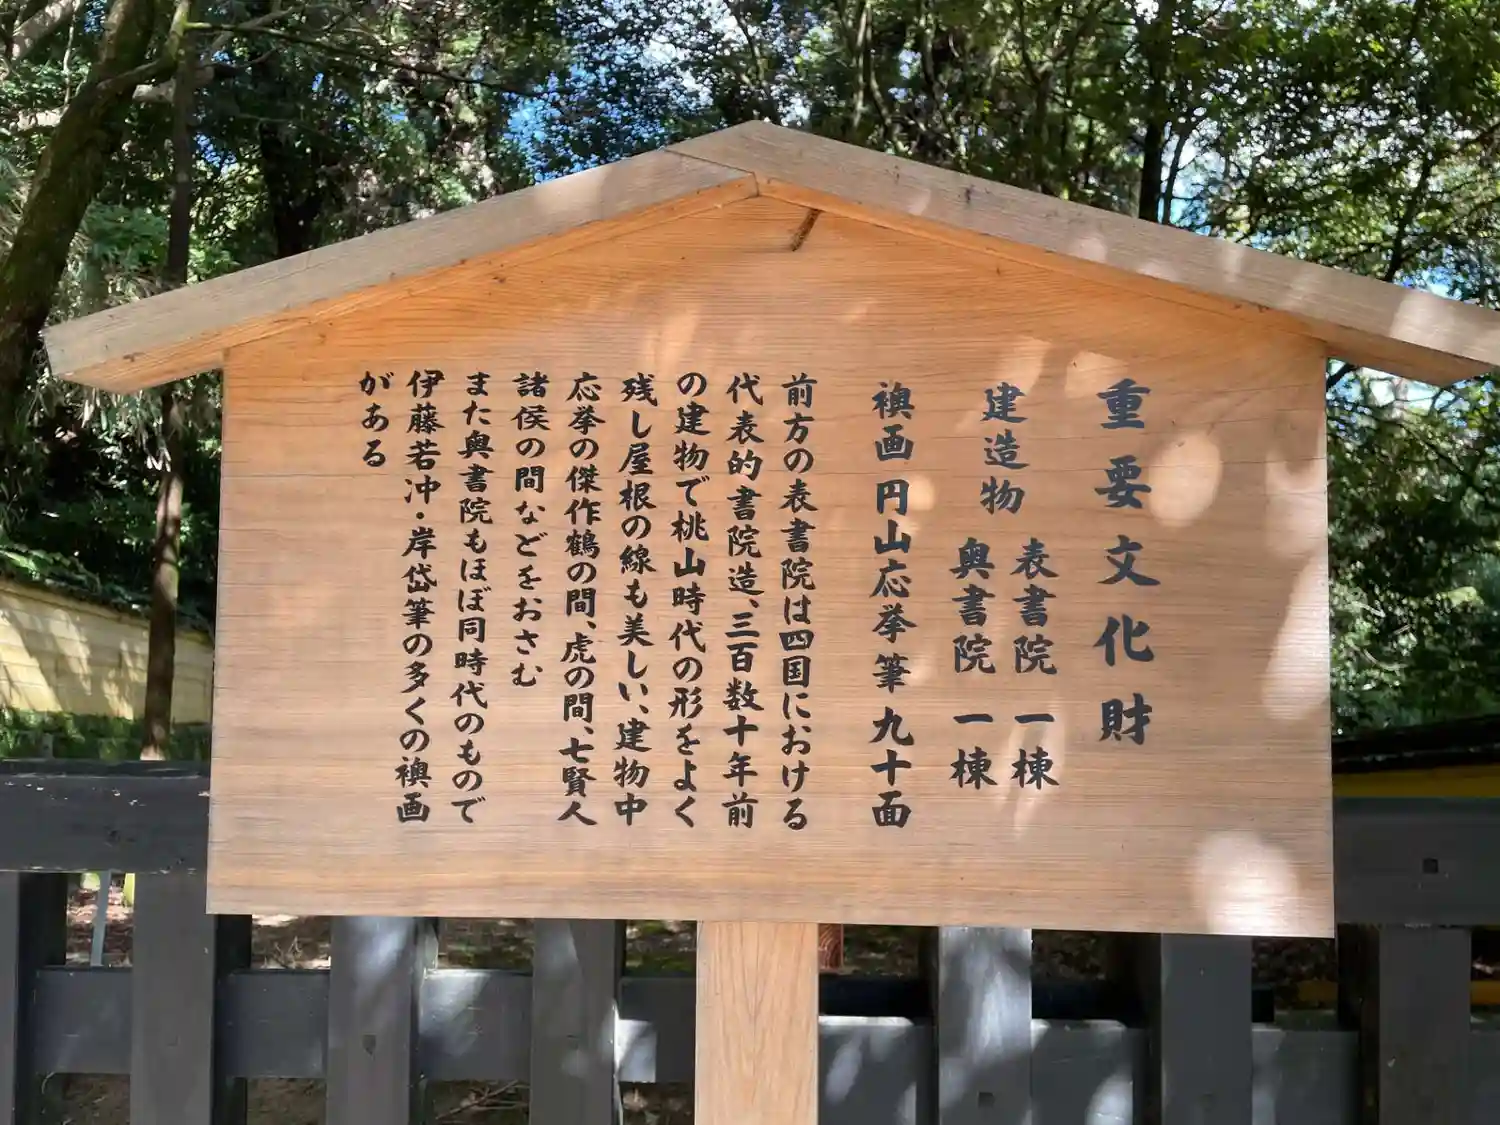 重要文化財
建造物 表書院 一棟
奥書院 一棟
襖画 円山応挙筆 九十面
前方の表書院は四国における
代表的書院造、三百数十年前
の建物で桃山時代の形をよく
残し屋根の線も美しい、建物中
応挙の傑作鶴の間、虎の間、七賢人
諸侯の間などをおさむ
また奥書院もほぼ同時代のもので
伊藤若冲・岸岱筆の多くの襖画
がある